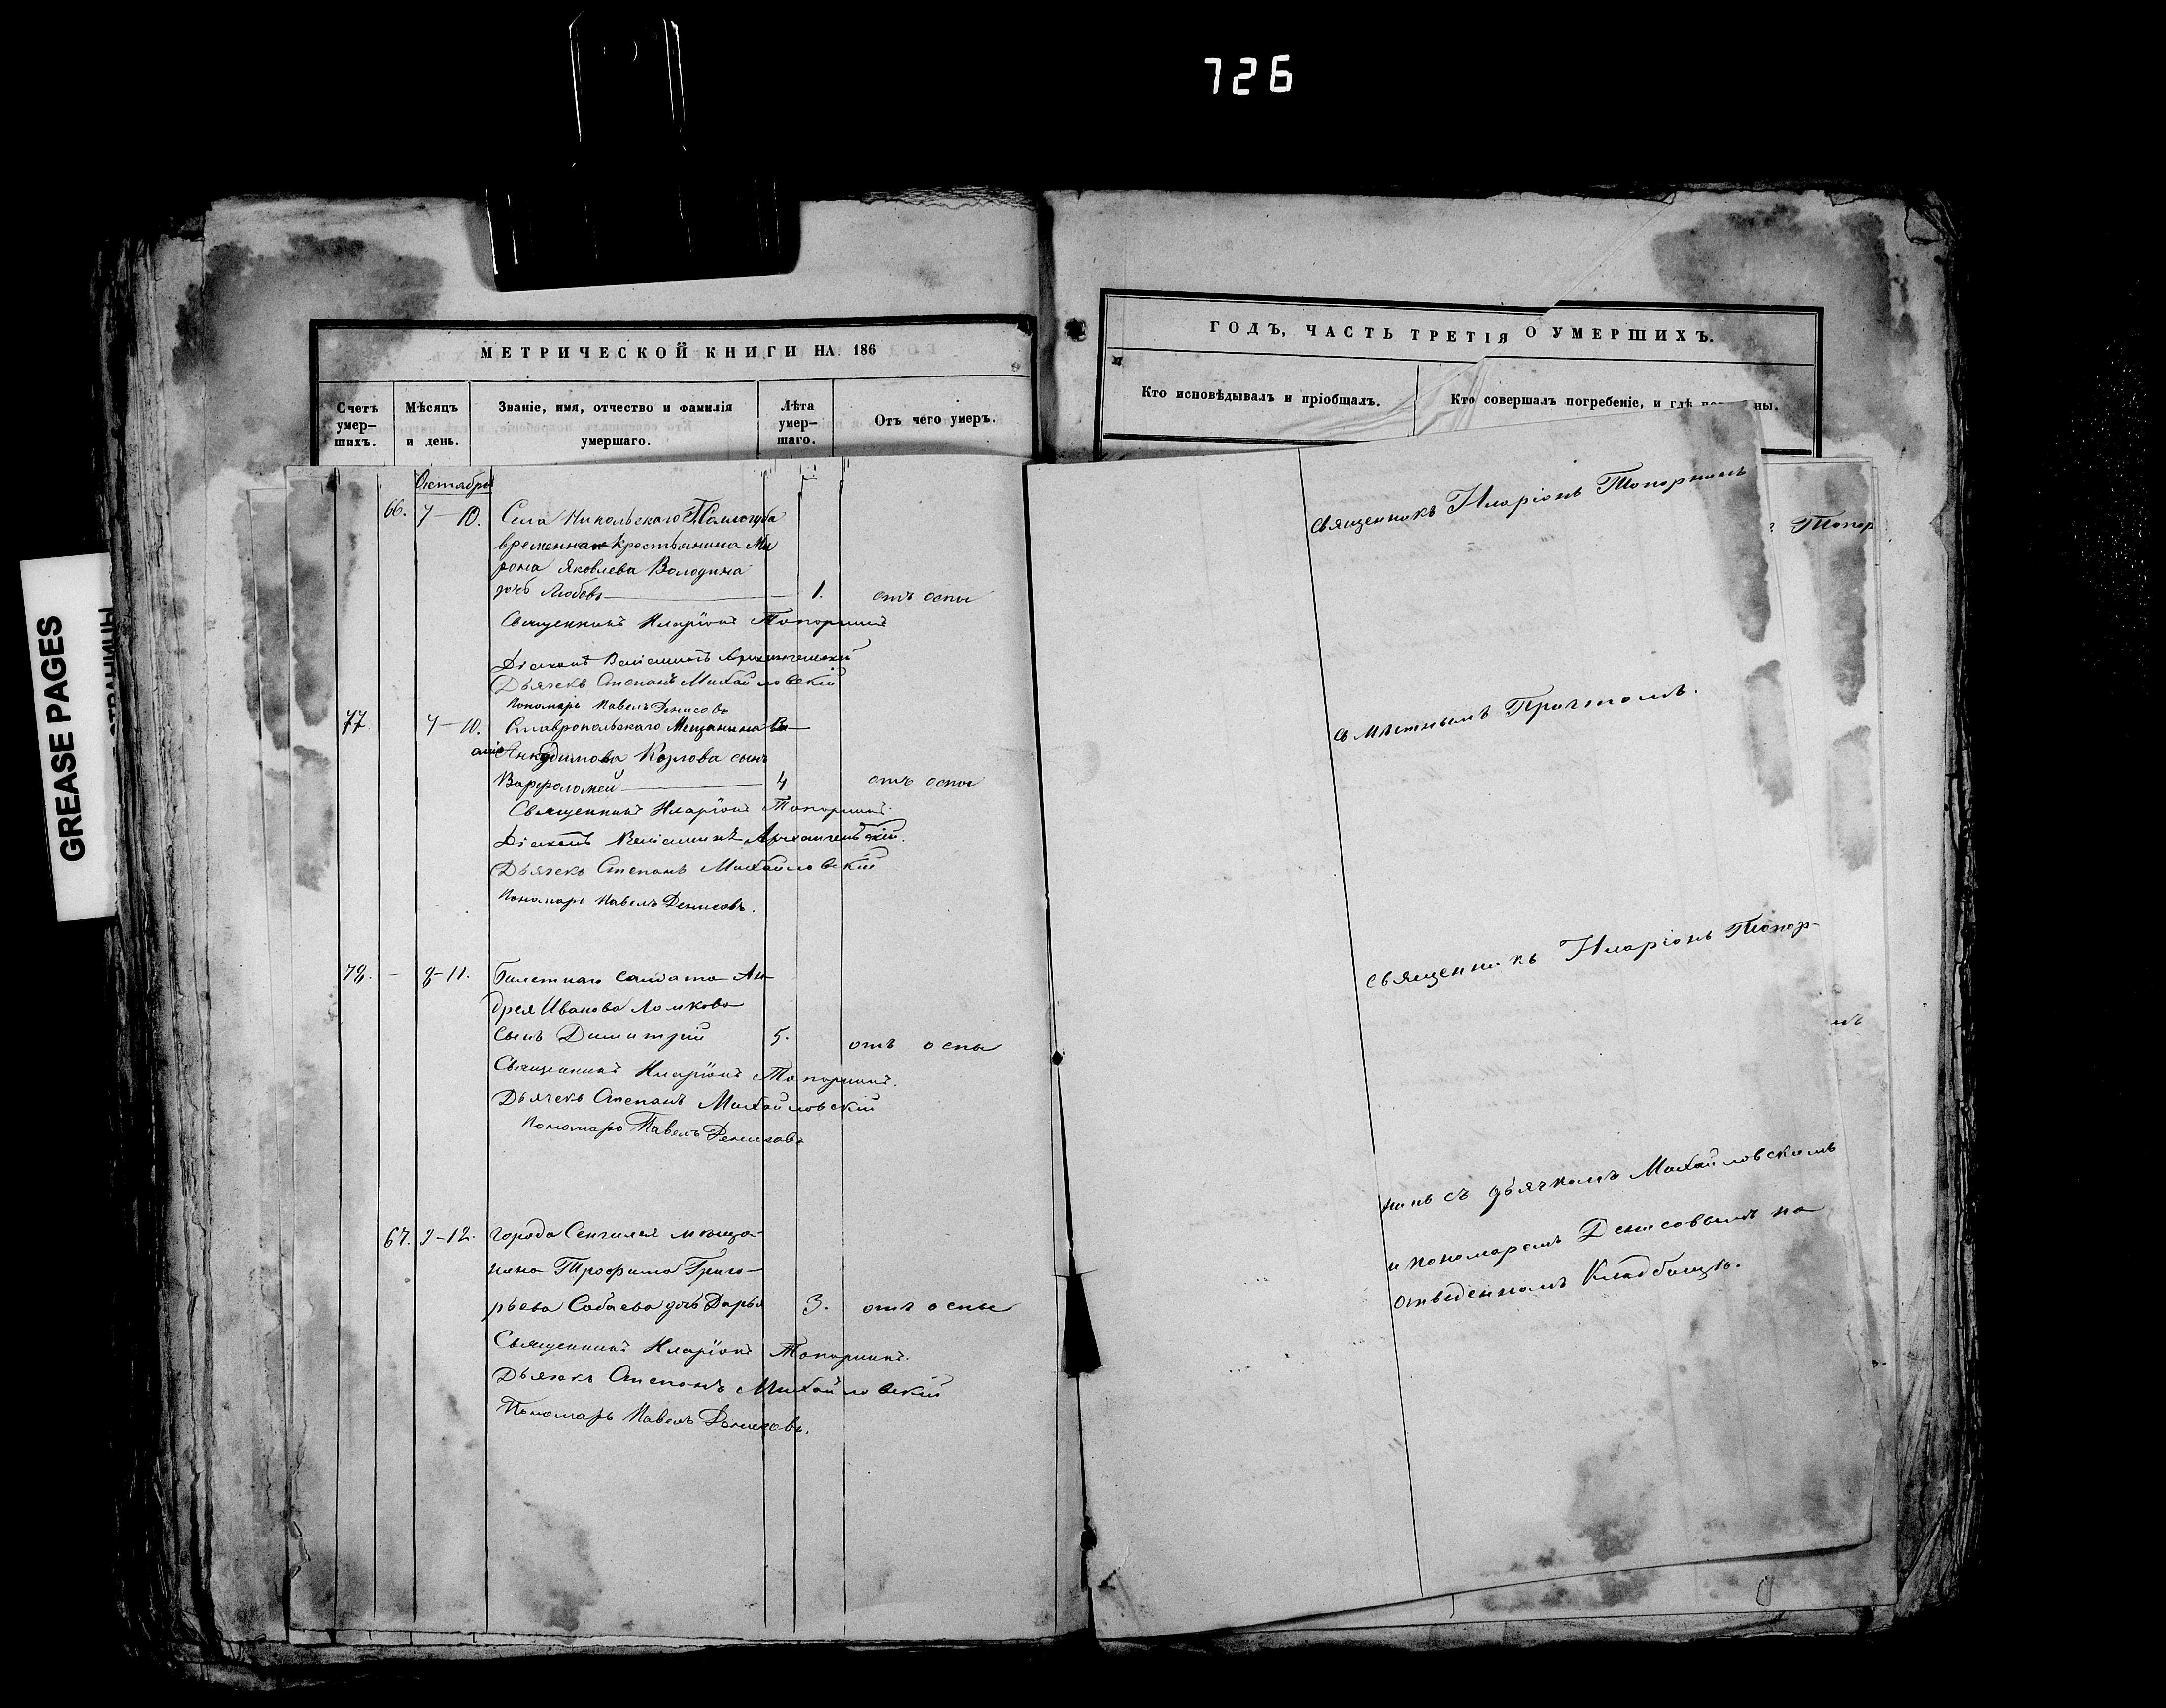 726
GREASE PAGES
СТРАНИЦЫ
МЕТРИЧЕСКОЙ КНИГИ НА 186
Счетъ умер-шихъ.
Мѣсяцъ и день.
Званіе, имя, отчество и фамилія умершаго.
Лѣта умер-шаго.
Отъ чего умеръ.
Октябрь
66. 7-10. Села Никольскаго
временно крестьянина Ми
рона Яковлева Володина
дочь Любовь 1. отъ оспы
Священникъ Иларіонъ Топорнинъ
Діаконъ Веніаминъ Архангельскій
Дьячекъ Степанъ Михайловскій
Пономарь Павелъ Денисовъ
77. 7-10. Ставропольскаго Мещанина Ва-
Анкудимова Козлова сынъ
Варфоломей 4 отъ оспы
Священникъ Иларіонъ Топорнинъ
Діаконъ Веніаминъ Архангельскій.
Дьячекъ Степанъ Михайловскій
Пономарь Павелъ Денисовъ.
78. - 8-11. Билетнаго салдата Ан-
дрея Иванова Ломкова
сынъ Димитрій 5. отъ оспы
Священникъ Иларіонъ Топорнинъ.
Дьячекъ Степанъ Михайловскій
Пономарь Павелъ Денисовъ
67. 9-12. города Сенгилея мѣща-
нина Трофима Григо-
рьева Собаева дочь Дарья 3. отъ оспы
Священникъ Иларіонъ Топорнинъ.
Дьячекъ Степанъ Михайловскій
Пономарь Павелъ Денисовъ.
ГОДЪ, ЧАСТЬ ТРЕТІЯ О УМЕРШИХЪ.
Кто исповѣдывалъ и пріобщалъ.
Кто совершалъ погребеніе, и гдѣ
ны.
Священникъ Иларіонъ Топорнинъ
Топор
съ мѣстнымъ Причтомъ.
Священникъ Иларіонъ Топор-
нинъ съ дьячкомъ Михайловскимъ
и пономаремъ Денисовымъ на
отведенномъ Кладбищѣ.